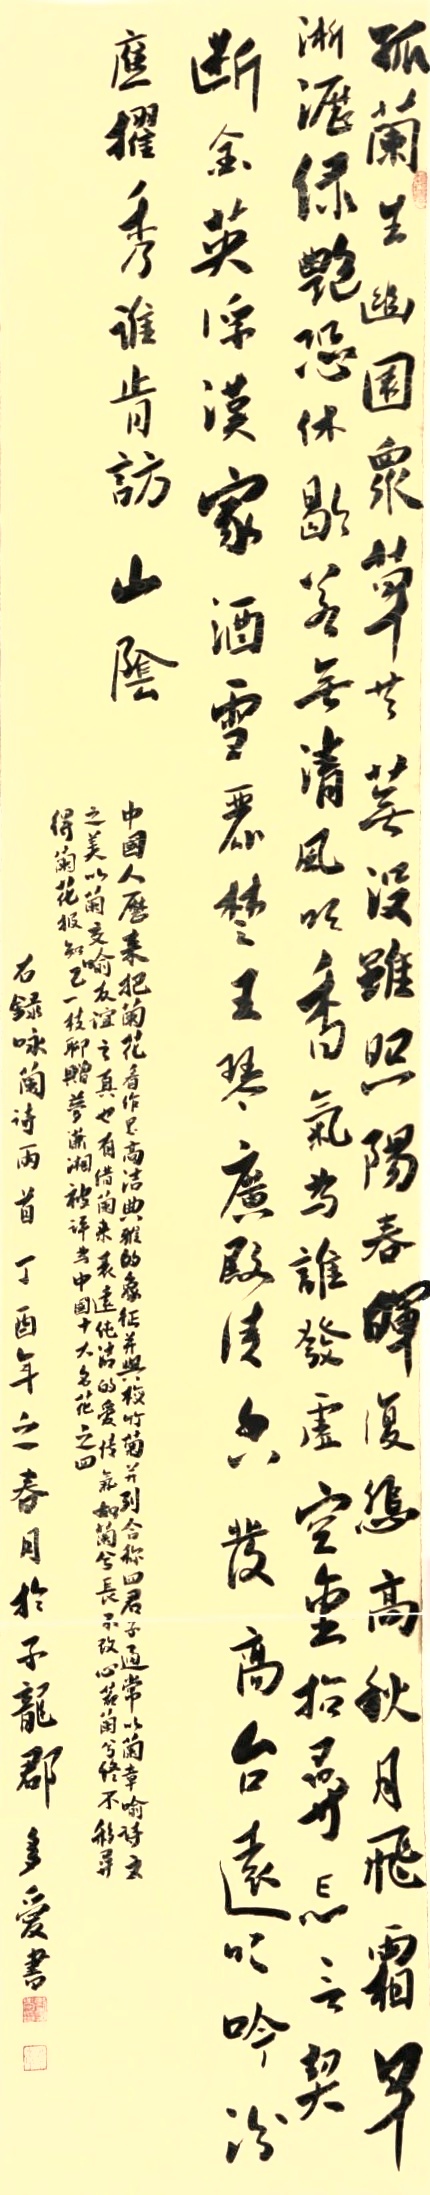 孤蘭生幽園眾草共蕪没雖照陽春暉復悲高秋月飛霜早
淅瀝绿艷恐休歇若無清風吹香氣为誰發虛空重招尋忘言契
断金英浮漢家酒雪麗楚王琴廣殿香發高台遠吹吟汾
應擢秀誰肯訪山陰
中國人歷来把蘭花看作是高洁典雅的象征并與梅竹菊并列合称四君子通常以蘭章喻詩文
之美以蘭交喻友谊之真也有借蘭来表達纯洁的爱情氣如蘭兮長不改心若蘭兮终不移尋
得蘭花报知己一枝聊赠夢潇湘被评为中国十大名花之四
右録咏蘭诗两首丁酉年之春月於子龍郡多愛書